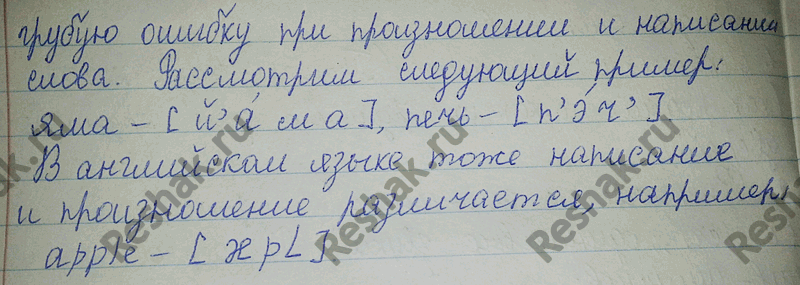 грубую ошибку при произношении и написании
слова. Рассмотрим следующий пример:
яма – [й'á м а], печь – [п'э́ч']
В английском языке тоже написание
и произношение различается, например:
apple – [æpL]
Reshak.ru
Reshak.ru
Reshak.ru
Reshak.ru
Reshak.ru
Reshak.ru